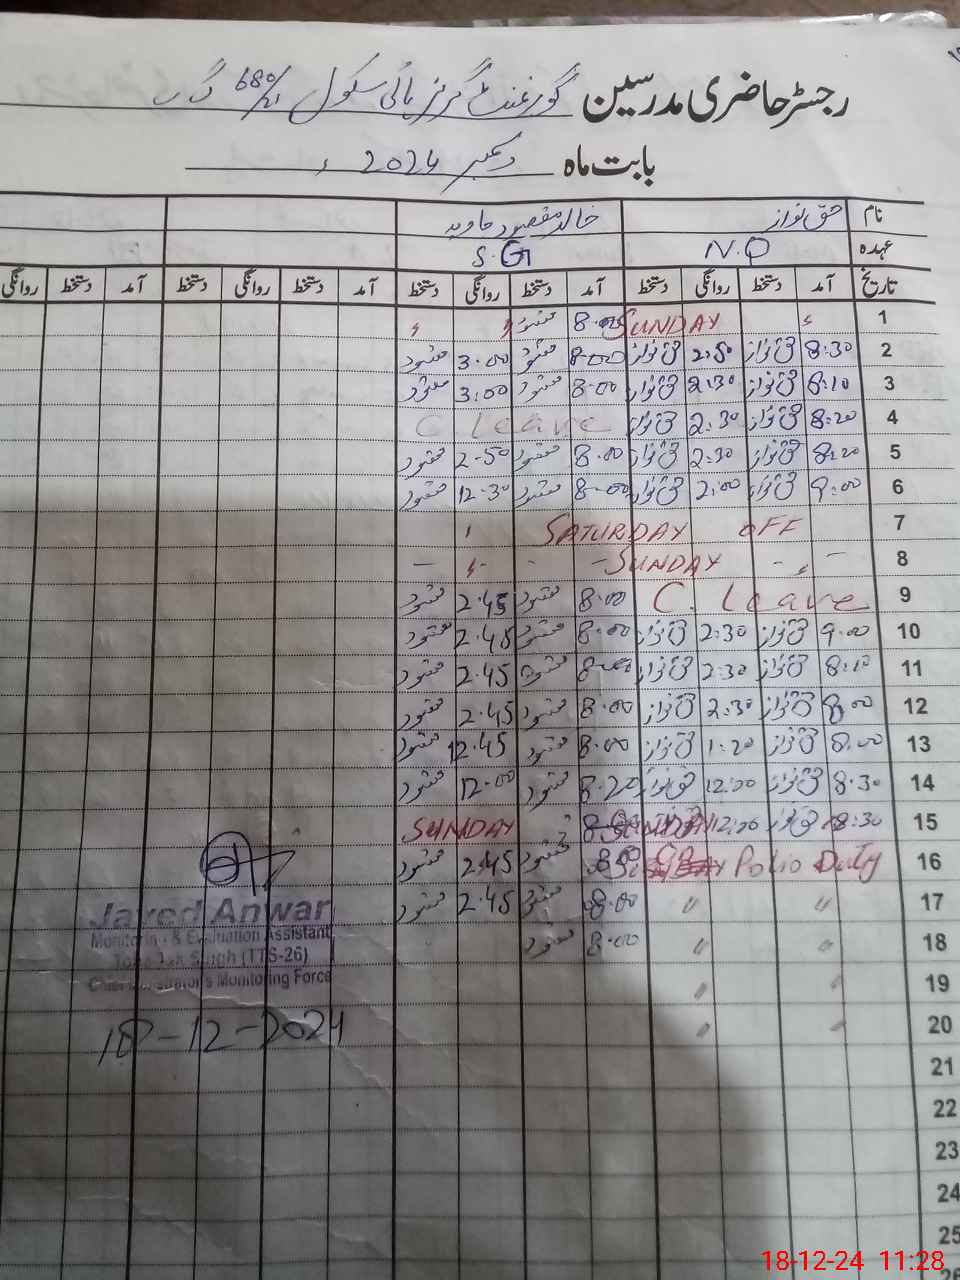 رجسٹر حاضری مدرسین گورنمنٹ گرلز ہائی سکول 68 گ ب
بابت ماہ دسمبر 2024ء
نام حق نواز خالد مقصود جاوید
عہدہ N.Q S.G
تاریخ آمد دستخط روانگی دستخط آمد دستخط روانگی دستخط آمد دستخط روانگی دستخط آمد دستخط روانگی
1 SUNDAY 8.00 مقصود
2 8:30 حق نواز 2:50 حق نواز 8.00 مقصود 3.00 مقصود
3 8:10 حق نواز 2:30 حق نواز 8.00 مقصود 3.00 مقصود
4 8:20 حق نواز 2:30 حق نواز C. Leave
5 8:20 حق نواز 2:30 حق نواز 8.00 مقصود 2.50 مقصود
6 9:00 حق نواز 2:00 حق نواز 8.00 مقصود 12.30 مقصود
7 SATURDAY OFF
8 SUNDAY
9 C. Leave 8.00 مقصود 2.45 مقصود
10 9:00 حق نواز 2:30 حق نواز 8.00 مقصود 2.45 مقصود
11 8:10 حق نواز 2:30 حق نواز 8.00 مقصود 2.45 مقصود
12 8:00 حق نواز 2:30 حق نواز 8.00 مقصود 2.45 مقصود
13 8:00 حق نواز 1:20 حق نواز 8.00 مقصود 12.45 مقصود
14 8:30 حق نواز 12:00 حق نواز 8.20 مقصود 12.00 مقصود
15 8:30 حق نواز 12:00 SUNDAY SUNDAY
16 Polio Duty 8.00 مقصود 2.45 مقصود
17 〃 〃 8.00 مقصود 2.45 مقصود
18 〃 〃 8.00 مقصود
19 〃 〃
20 〃 〃
21
22
23
24
25
26
Javed Anwar
Monitoring & Evaluation Assistant
Toba Tek Singh (TTS-26)
Chief Minister's Monitoring Force
18-12-2024
18-12-24 11:28